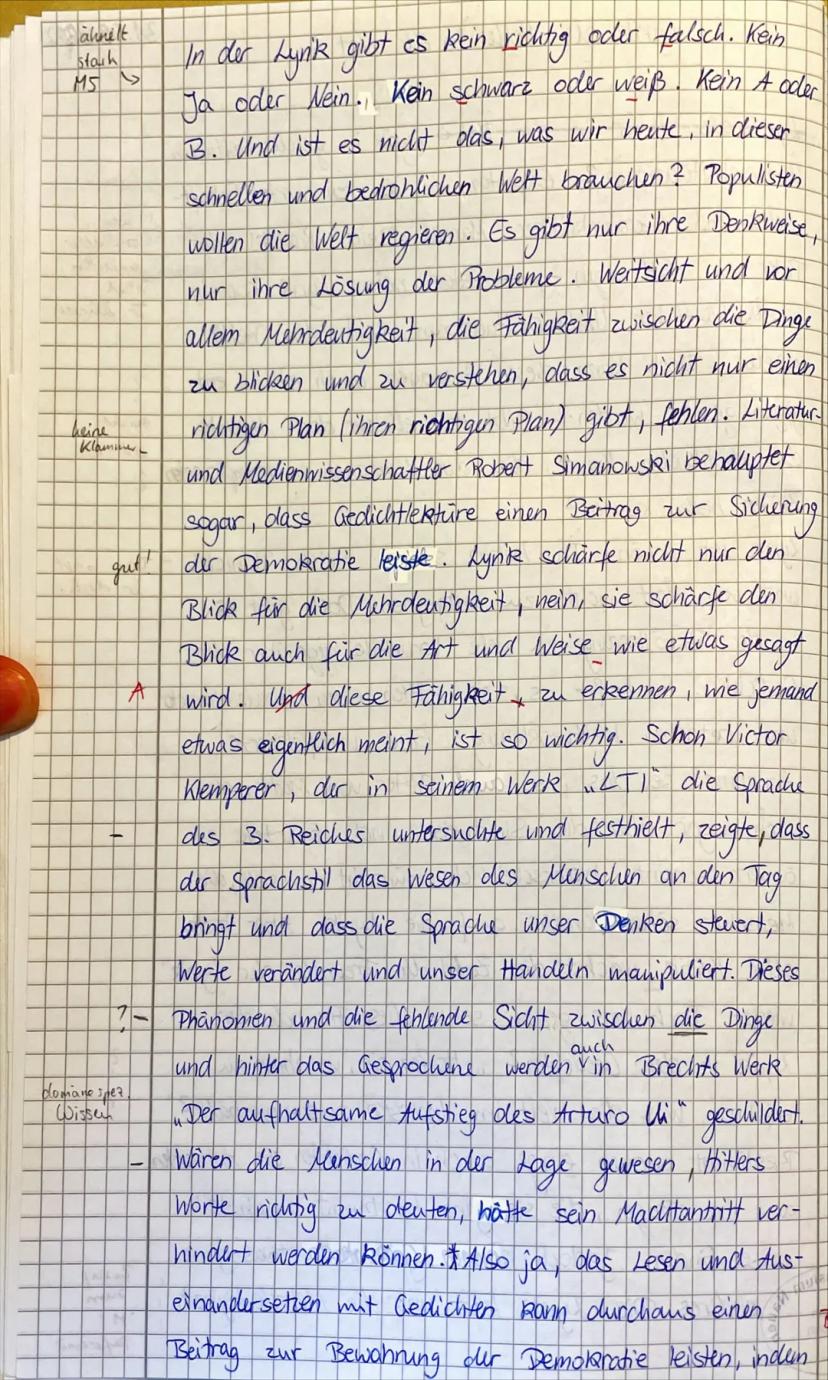 ähnelt
stark
M5
In der Lyrik gibt es kein richtig oder falsch. Kein
Ja oder Nein. Kein schwarz oder weiß. Kein A oder
B. Und ist es nicht das, was wir heute, in dieser
schnellen und bedrohlichen Welt brauchen? Populisten
wollen die Welt regieren. Es gibt nur ihre Denkweise,
nur ihre Lösung der Probleme. Weitsicht und vor
allem Mehrdeutigkeit, die Fähigkeit zwischen die Dinge
zu blicken und zu verstehen, dass es nicht nur einen
richtigen Plan (ihren richtigen Plan) gibt, fehlen. Literatur-
keine
Klammer
und Medienwissenschaftler Robert Simanowski behauptet
sogar, dass Gedichtlektüre einen Beitrag zur Sicherung
gut!
der Demokratie leiste. Lyrik schärfe nicht nur den
Blick für die Mehrdeutigkeit, nein, sie schärfe den
Blick auch für die Art und Weise wie etwas gesagt
A
wird. Und diese Fähigkeit, zu erkennen, wie jemand
etwas eigentlich meint, ist so wichtig. Schon Victor
Klemperer, der in seinem Werk „LTI" die Sprache
– des 3. Reiches untersuchte und festhielt, zeigte, dass
der Sprachstil das Wesen des Menschen an den Tag
bringt und dass die Sprache unser Denken steuert,
Werte verändert und unser Handeln manipuliert. Dieses
?– Phänomen und die fehlende Sicht zwischen die Dinge
und hinter das Gesprochene werden auch in Brechts Werk
domänespez.
Wissen
„Der aufhaltsame Aufstieg des Arturo Ui" geschildert.
– Wären die Menschen in der Lage gewesen, Hitlers
Worte richtig zu deuten, hätte sein Machtantritt ver-
hindert werden können.* Also ja, das Lesen und Aus-
einandersetzen mit Gedichten kann durchaus einen
Beitrag zur Bewahrung der Demokratie leisten, indem